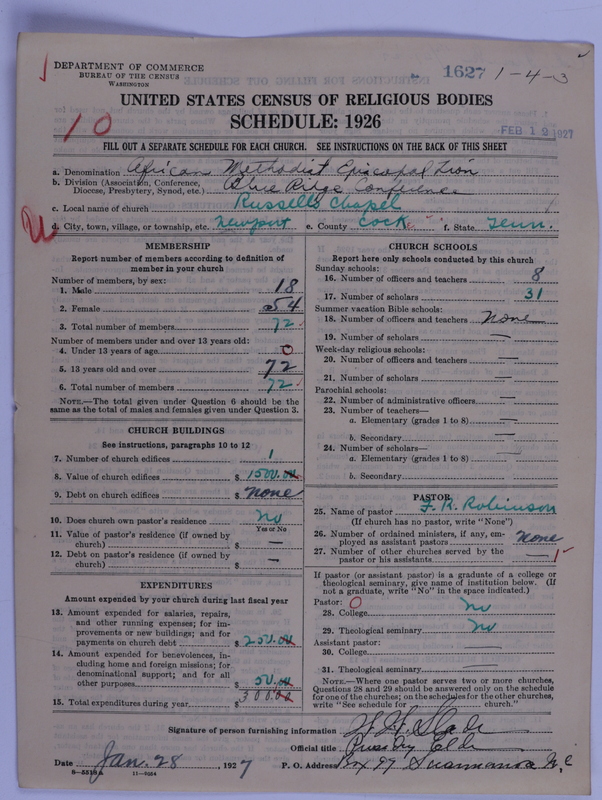 DEPARTMENT OF COMMERCE
BUREAU OF THE CENSUS
WASHINGTON
1627 1-4-3
UNITED STATES CENSUS OF RELIGIOUS BODIES
SCHEDULE: 1926
10
FEB 19 1927
FILL OUT A SEPARATE SCHEDULE FOR EACH CHURCH. SEE INSTRUCTIONS ON THE BACK OF THIS SHEET
a. Denomination African Methodist Episcopal Zion
b. Division (Association, Conference, Diocese, Presbytery, Synod, etc.) Blue Ridge Conference
c. Local name of church Russells Chapel
d. City, town, village, or township, etc. Newport e. County Cocke f. State Tenn.
MEMBERSHIP
Report number of members according to definition of
member in your church
Number of members, by sex:
1. Male 18
2. Female 54
3. Total number of members 72
Number of members under and over 13 years old:
4. Under 13 years of age 0
5. 13 years old and over 72
6. Total number of members 72
NOTE.—The total given under Question 6 should be
same as the total of males and females given under Question 3.
CHURCH BUILDINGS
See instructions, paragraphs 10 to 12
7. Number of church edifices 1
8. Value of church edifices $ 1500.00
9. Debt on church edifices $ None
10. Does church own pastor's residence No
Yes or No
11. Value of pastor's residence (if owned by
church) $ —
12. Debt on pastor's residence (if owned by
church) $ —
EXPENDITURES
Amount expended by your church during last fiscal year
13. Amount expended for salaries, repairs,
and other running expenses; for im-
provements or new buildings; and for
payments on church debt $ 250.00
14. Amount expended for benevolences, in-
cluding home and foreign missions; for
denominational support; and for all
other purposes $ 50.00
15. Total expenditures during year $ 300.00
CHURCH SCHOOLS
Report here only schools conducted by this church
Sunday schools:
16. Number of officers and teachers 8
17. Number of scholars 31
Summer vacation Bible schools:
18. Number of officers and teachers None
19. Number of scholars —
Week-day religious schools:
20. Number of officers and teachers —
21. Number of scholars —
Parochial schools:
22. Number of administrative officers —
23. Number of teachers—
a. Elementary (grades 1 to 8) —
b. Secondary —
24. Number of scholars—
a. Elementary (grades 1 to 8) —
b. Secondary —
PASTOR
25. Name of pastor F. R. Robinson
(If church has no pastor, write "None")
26. Number of ordained ministers, if any, em-
ployed as assistant pastors None
27. Number of other churches served by the
pastor or his assistants — 1
If pastor (or assistant pastor) is a graduate of a college or
theological seminary, give name of institution below. (If
not a graduate, write "No" in the space indicated.)
Pastor: 0
28. College No
29. Theological seminary No
Assistant pastor:
30. College —
31. Theological seminary —
NOTE.—Where one pastor serves two or more churches,
Questions 28 and 29 should be answered only on the schedule
for one of the churches; on the schedules for the other churches,
write "See schedule for church."
Signature of person furnishing information W. H. Slade
Official title Presidg Elder
Date Jan. 28, 1927 P. O. Address Box 97 Swannanoa N.C
8-5518a 11-9264